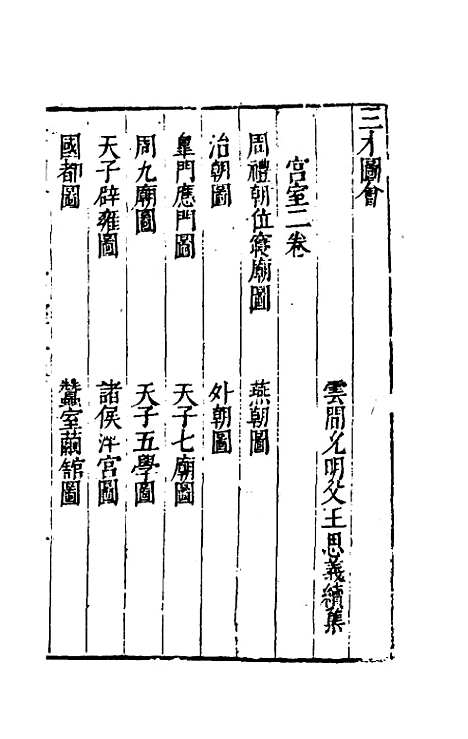 三才圖會
雲間允明父王思義續集
宮室二卷
周禮朝位寢廟圖
燕朝圖
治朝圖
外朝圖
皐門應門圖
天子七廟圖
周九廟圖
天子五學圖
天子辟雍圖
諸侯泮宮圖
國都圖
蠶室繭館圖